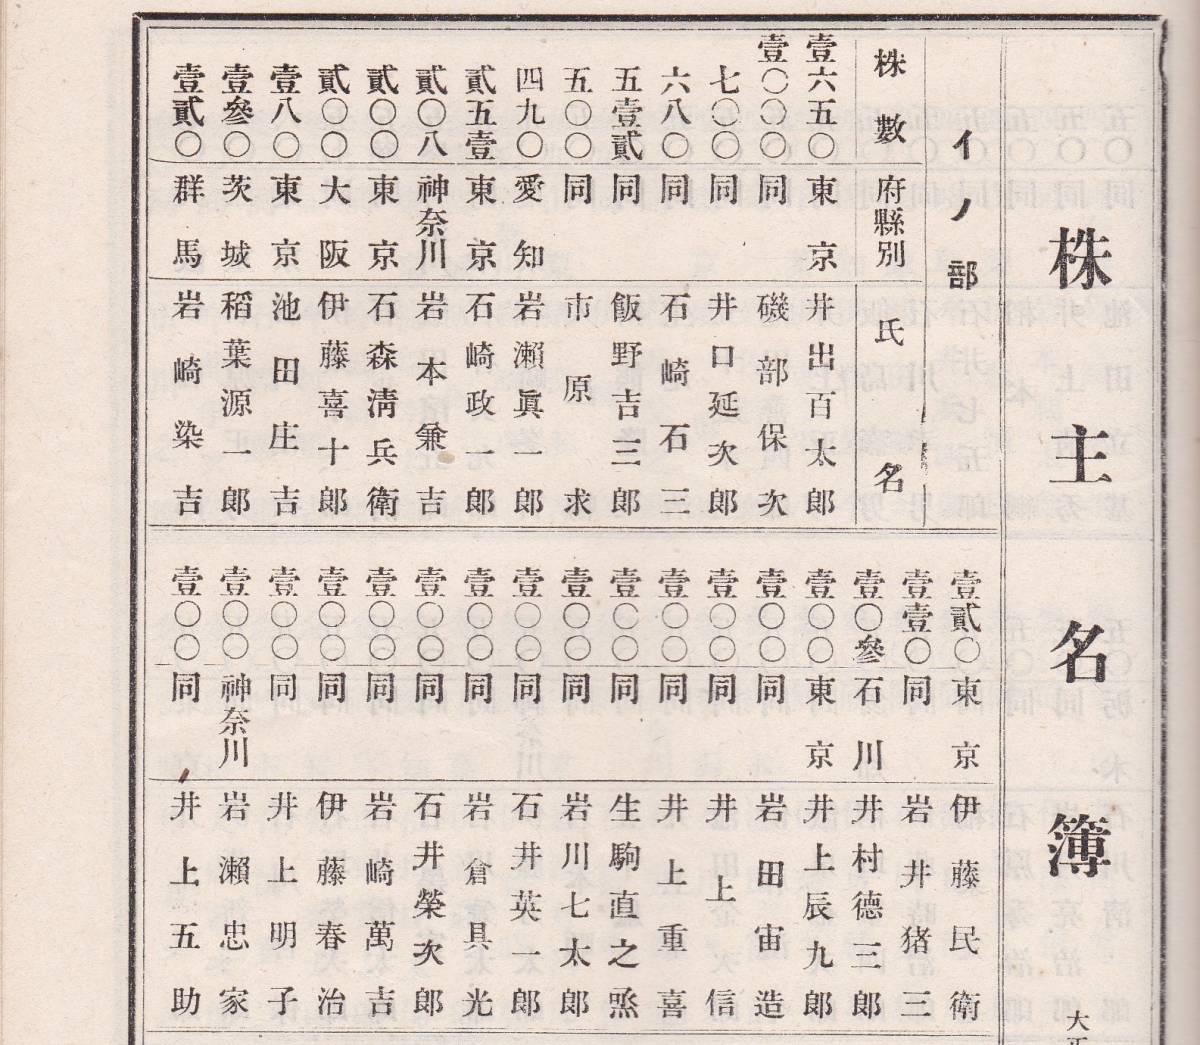 株主名簿
大正
イノ部
株數 府縣別 氏名
壹六五〇 東京 井出百太郎
壹〇〇〇 同 磯部保次
七〇〇 同 井口延次郎
六八〇 同 石崎石三
五壹貳 同 飯野吉三郎
五〇〇 同 市原求
四九〇 愛知 岩瀨眞一郎
貳五壹 東京 石崎政一郎
貳〇八 神奈川 岩本兼吉
貳〇〇 東京 石森淸兵衛
貳〇〇 大阪 伊藤喜十郎
壹八〇 東京 池田庄吉
壹參〇 茨城 稻葉源一郎
壹貳〇 群馬 岩崎染吉
壹貳〇 東京 伊藤民衛
壹壹〇 同 岩井猪三
壹〇參 石川 井村德三郎
壹〇〇 東京 井上辰九郎
壹〇〇 同 岩田宙造
壹〇〇 同 井上信
壹〇〇 同 井上重喜
壹〇〇 同 生駒直之烝
壹〇〇 同 岩川七太郎
壹〇〇 同 石井英一郎
壹〇〇 同 岩倉具光
壹〇〇 同 石井榮次郎
壹〇〇 同 岩崎萬吉
壹〇〇 同 伊藤春治
壹〇〇 同 井上明子
壹〇〇 神奈川 岩瀨忠家
壹〇〇 同 井上五助